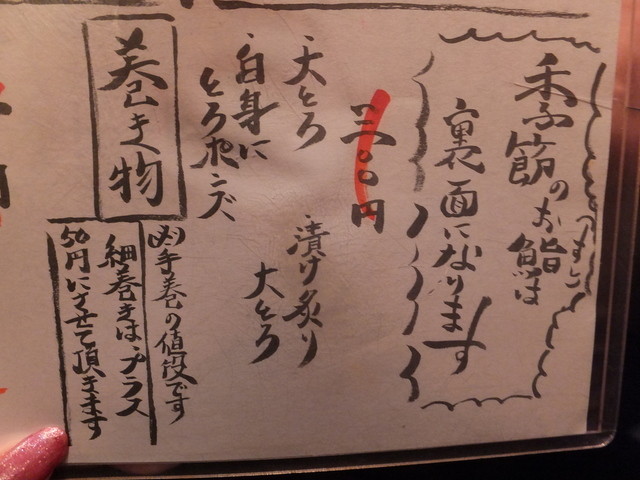 季節のお鮨は
すし
裏面になります
三〇〇円
大とろ
漬け炙り
大とろ
白身に
とろポンズ
巻き物
手巻の値段です
細巻きはプラス
50円にさせて頂きます